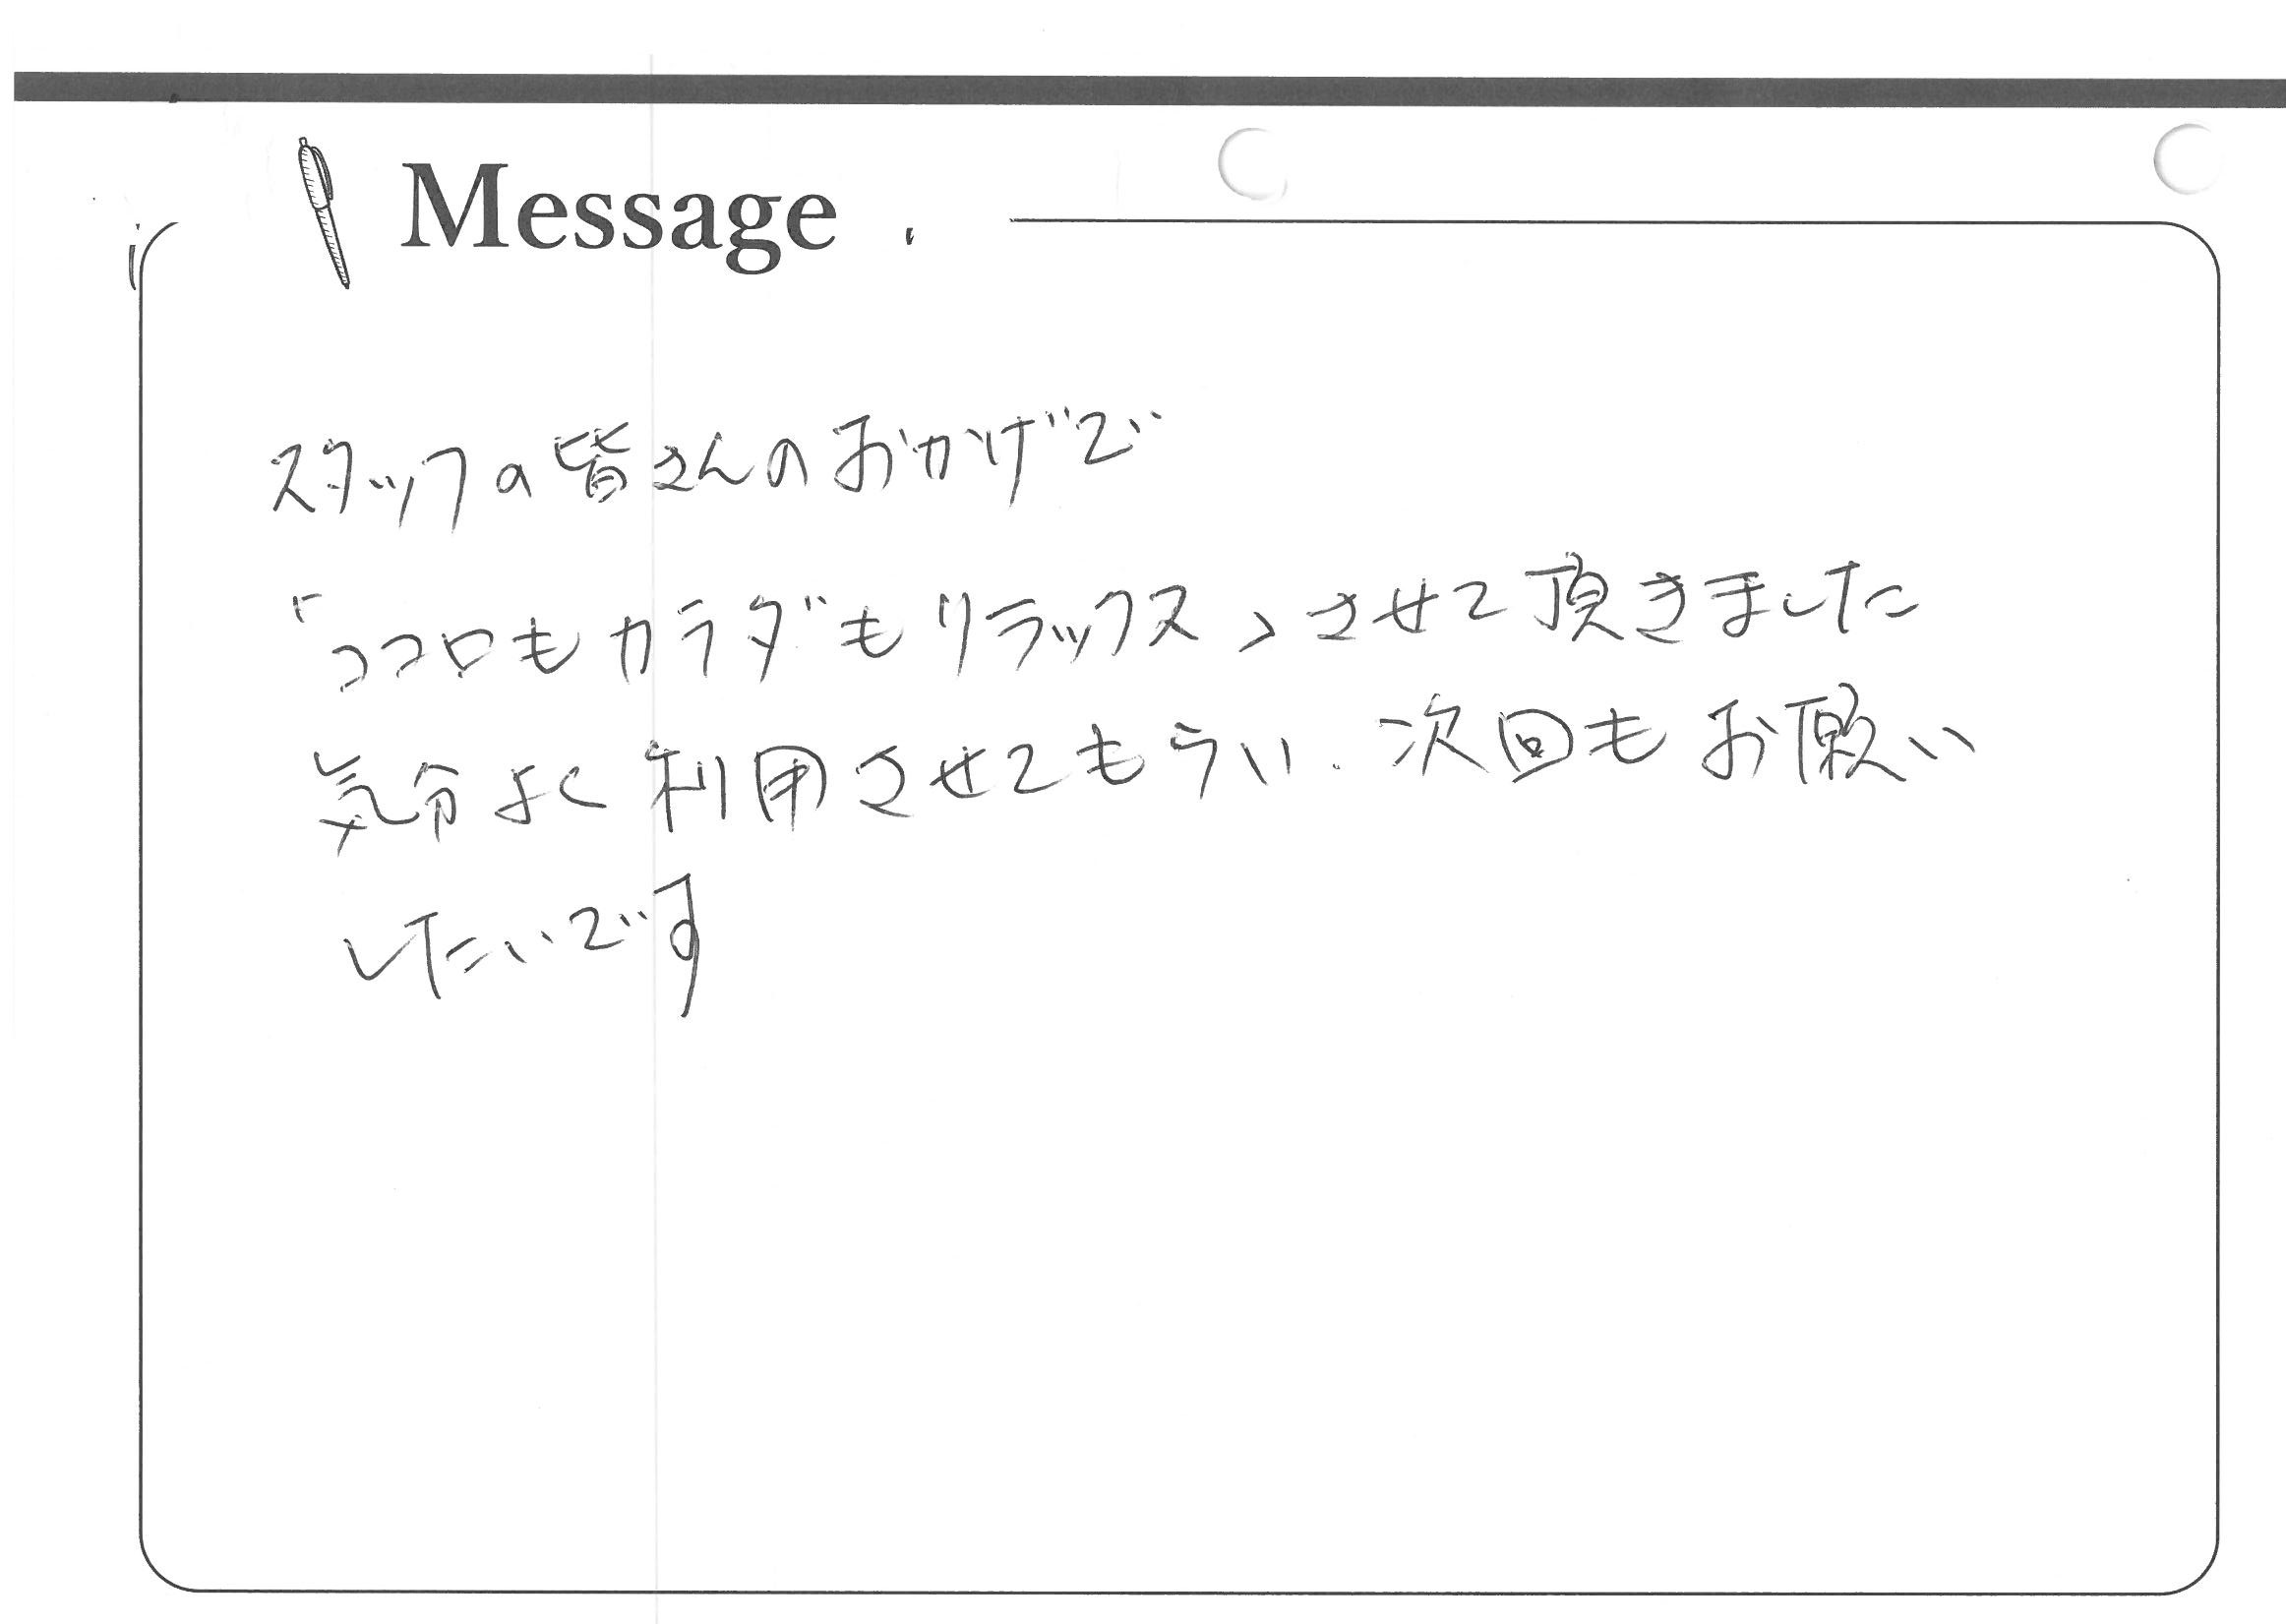 Message
スタッフの皆さんのおかげで
「ココロもカラダもリラックス」させて頂きました
気分よく利用させてもらい、次回もお願い
したいです